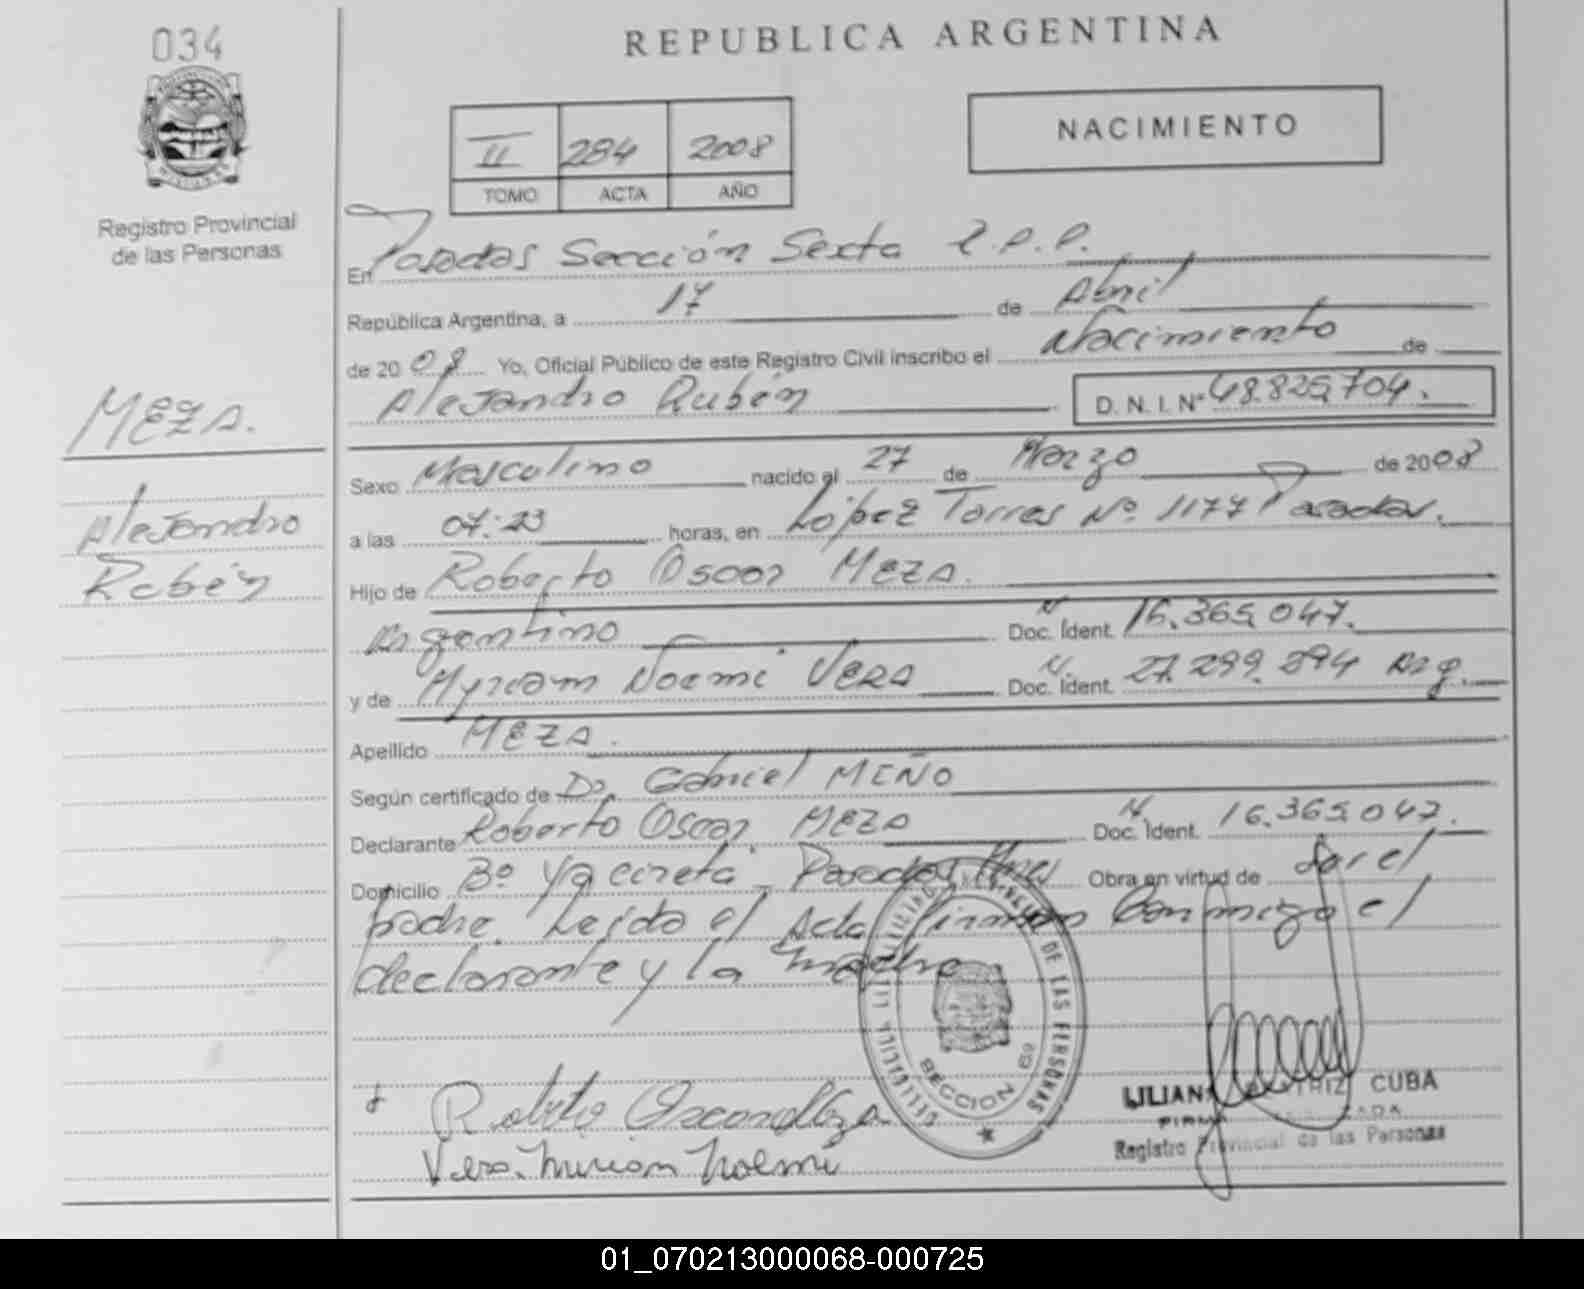 034
REPUBLICA ARGENTINA
NACIMIENTO
II 284 2008
TOMO ACTA AÑO
Registro Provincial
de las Personas
En Posadas Sección Sexta R.P.P.
República Argentina, a 17 de Abril
de 2008 Yo, Oficial Público de este Registro Civil inscribo el Nacimiento de
Alejandro Rubén D.N.I. Nº 48.825.704.
MEZA.
Alejandro
Rubén
Sexo Masculino nacido el 27 de Marzo de 2008
a las 07:23 horas, en López Torres Nº 1177 Posadas.
Hijo de Roberto Oscar MEZA.
Argentino Doc. Ident. N 16.365.047.
y de Myriam Noemi VERA Doc. Ident. N. 27.299.894 Arg.
Apellido MEZA.
Según certificado de Dr. Gabriel MIÑO
Declarante Roberto Oscar MEZA Doc. Ident. N 16.365.047.
Domicilio Bº Yacireta Posadas Mnes Obra en virtud de Ser el
padre. Leída el Acta firman conmigo el
declarante y la madre
DE LAS PERSONAS
SECCION 6ª
Roberto Oscar Meza
Vera Miriam Noemi
LILIANA BEATRIZ CUBA
FIRMA
Registro Provincial de las Personas
01_070213000068-000725